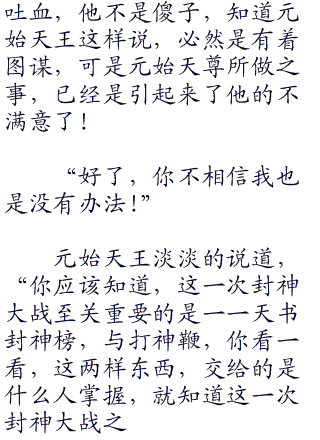 吐血，他不是傻子，知道元
始天王这样说，必然是有着
图谋，可是元始天尊所做之
事，已经是引起来了他的不
满意了！
“好了，你不相信我也
是没有办法！”
元始天王淡淡的说道，
“你应该知道，这一次封神
大战至关重要的是一一天书
封神榜，与打神鞭，你看一
看，这两样东西，交给的是
什么人掌握，就知道这一次
封神大战之